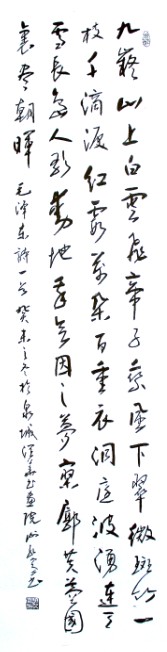 九嶷山上白雲飛帝子乘風下翠微斑竹一
枝千滴淚紅霞萬朵百重衣洞庭波湧連天
雪長島人歌動地我欲因之夢寥廓芙蓉國
裏盡朝暉 毛澤東詩一首癸未之冬於泉城書畫院